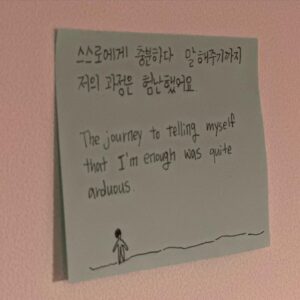 스스로에게 충분하다 말해주기까지
저의 과정은 험난했어요.
The journey to telling myself
that I'm enough was quite
arduous